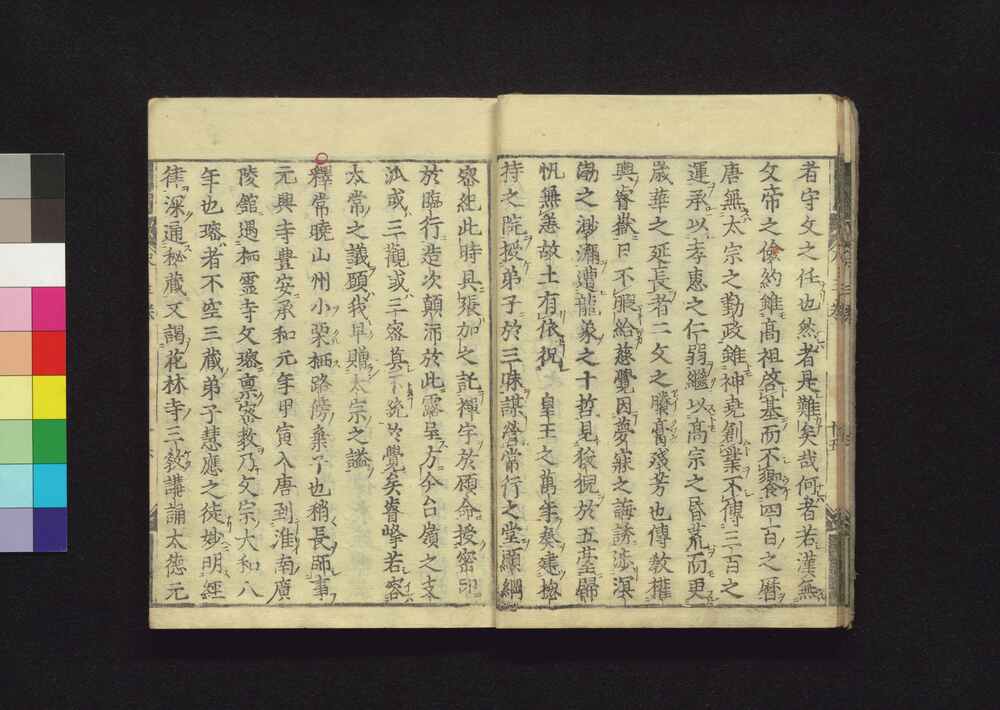 者守文之任也然者是難矣哉何者若漢無
文帝之儉約雖高祖啓基而不饗四百之曆
唐無太宗之勤政雖神堯創業不傳三百之
運承以孝惠之仁弱繼以高宗之昏荒而更
歲華之延長者二文之賸膏殘芳也傳教權
輿睿嶽日不暇給慈覺因夢寐之誨誘涉溟
渤之渺瀰遭龍象之十哲見狻猊於五莖歸
帆無恙故土有依祝 皇王之萬年奏建揔
持之院授弟子於三昧謀營常行之堂顯綱
密紀此時具張加之託禪宇於顧命授密印
於臨行造次顚沛於此露呈方今台嶺之支
派或三觀或三密莫不統於覺矣睿峰若容
太常之議頤我早贈太宗之謚
釋常曉山州小栗栖路傍棄子也稍長師事
元興寺豐安承和元年甲寅入唐到淮南廣
陵館遇栖靈寺文璨稟密教乃文宗大和八
年也璨者不空三藏弟子慧應之徒妙明經
律深通秘藏又謁花林寺三教講誦大德元